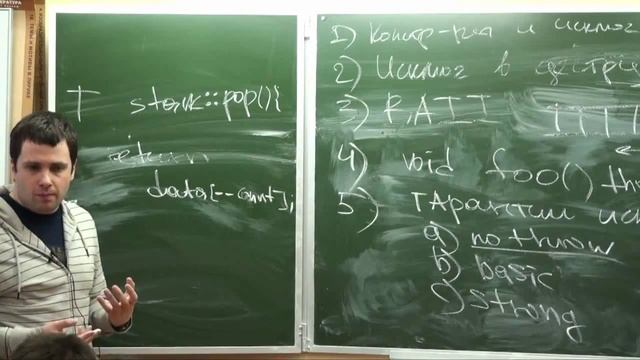 T stack::pop(){
return
data[--count];
1) Констр-ры и исключ
2) Исключ в дестр
3) RAII
4) void foo() th
5) Гарантии иск
a) no throw
b) basic
c) strong